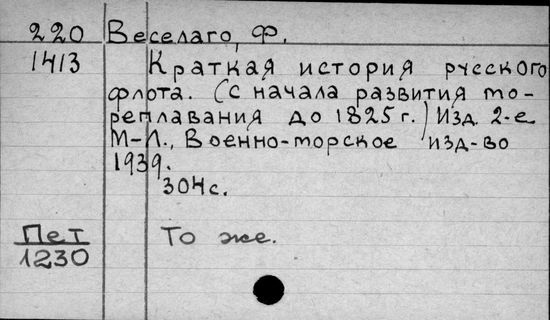 220 Веселаго, Ф.
1413 Краткая история русского
флота. (с начала развития мо-
реплавания до 1825 г.) Изд. 2-е
М-Л., Военно-морское изд-во
1939.
304 с.
Пет То же.
1230